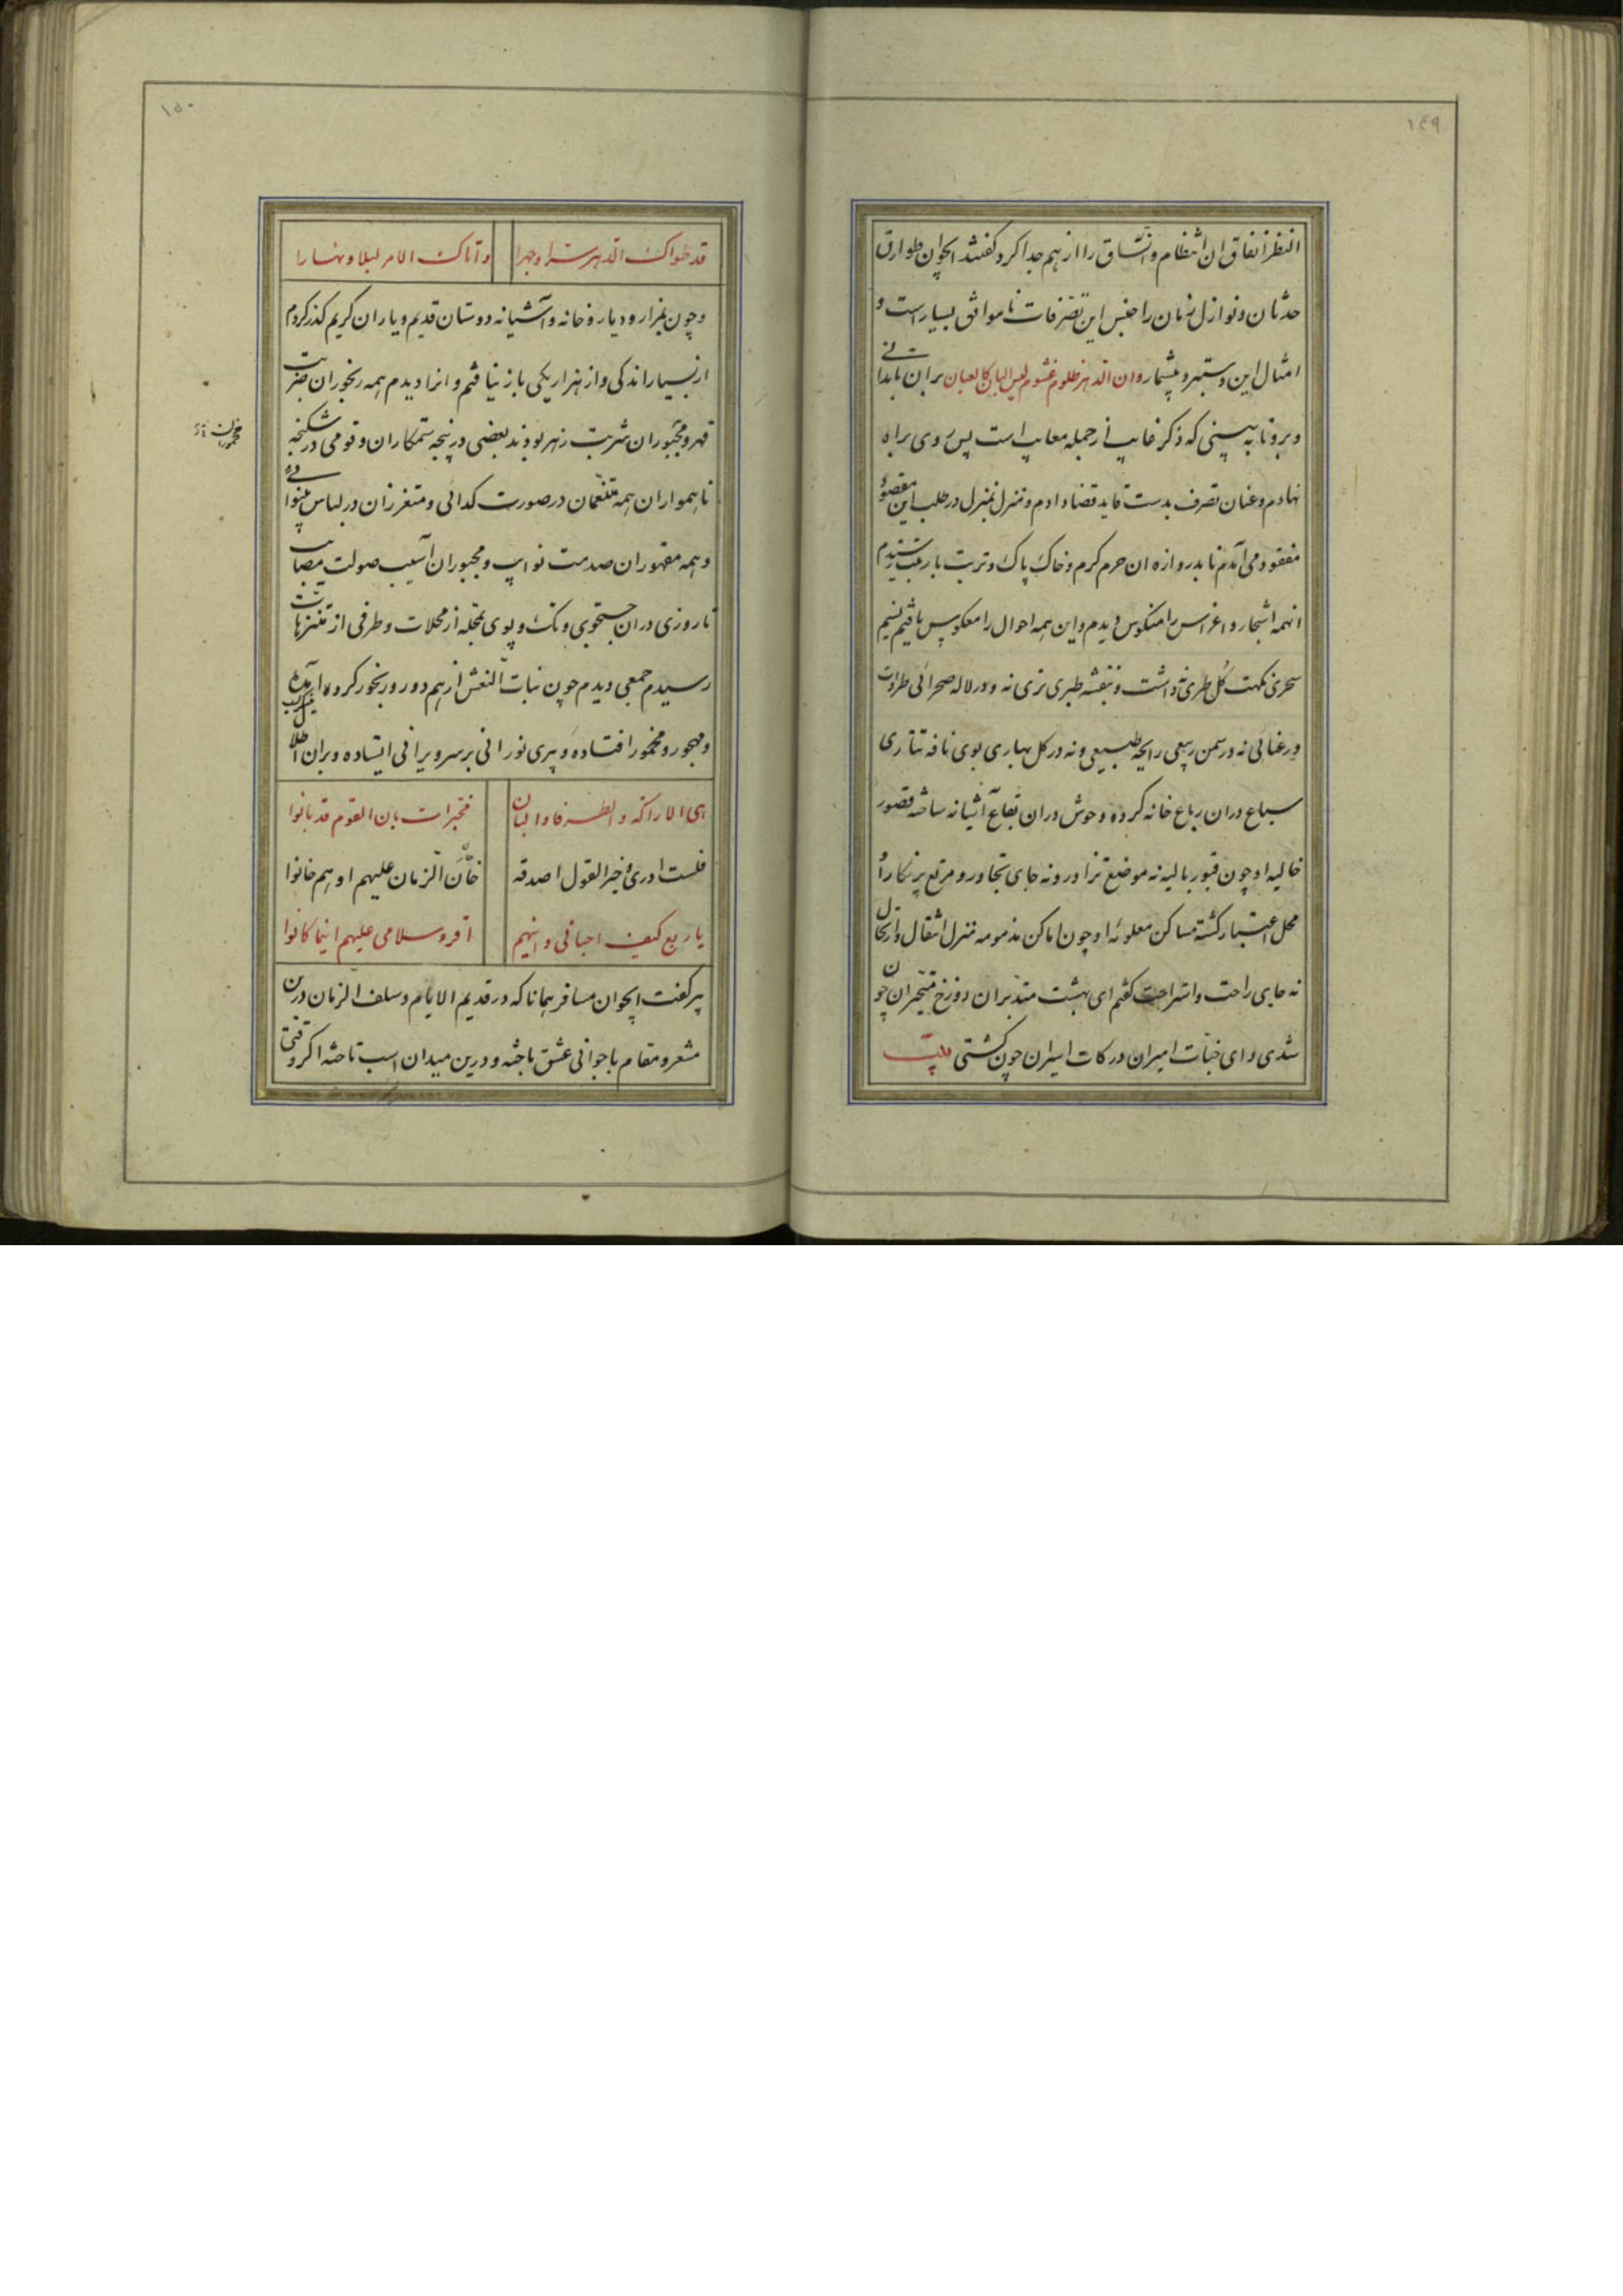 ١٤٩
النظر اتفاق ان انتظام و اتّساق را از هم جدا کرد گفتند ایجوان طوارق
حدثان و نوازل زمان را جنس این تصرّفات نا موافق بسیار است و
امثال این دستبرد بیشمار و ان الدهر ظلوم غشوم لیس البیان کالعیان بران تا بدانی
و برو تا به بینی که ذکر غایب از جمله معایب است پس روی براه
نهادم و عنان تصرف بدست قاید قضا دادم و منزل بمنزل در طلب این مقصود
مفقود می آمدم تا بدروازه ان حرم کرم و خاک پاک و تربت با رتبت رسیدم
انهمه اشجار و اغراس را منکوس دیدم و این همه احوال را معکوس یافتم نسیم
سحری نکهت گل طری نداشت و بنفشه طبری تری نه و در لاله صحرائی طراوت
و رعنائی نه در سمن ربیعی رایحه طبیعی و نه در کل بهاری بوی نافه تتاری
سباع دران رباع خانه کرده و حوش دران بقاع آشیانه ساخته قصور
خالیه او چون قبور بالیه نه موضع تزاور و نه جای تجاور و مرتع پر نکار او
محل اعتبار کشته مساکن معلوئه او چون اماکن مذمومه منزل انتقال و ارتحال
نه جای راحت و استراحت گفتم ای بهشت متدبران دوزخ متحیران چون
شدی و ای جنّات امیران درکات اسیران چون کشتی بیت
١٥٠
قد طواک الدهر سرا و جهرا و اتاک الامر لیلا و نهارا
و چون بمزار و دیار و خانه و آشیانه دوستان قدیم و یاران کریم گذر کردم
از بسیار اندکی و از هزار یکی باز نیافتم و انرا دیدم همه رنجوران ضربت
قهر و مخبوران شربت زهر بودند بعضی در پنجه ستمکاران و قومی در شکنجه
مخموران
ناهمواران همه متنعّمان در صورت کدائی و متعززان در لباس بینوائی
و همه مقهوران صدمت نوایب و مجبوران آسیب صولت مصایب
تا روزی دران جستجوی و تک و پوی بمحله از محلات و طرفی از متنزهات
رسیدم جمعی دیدم چون بنات النعش از هم دور و رنجور کرد
و مهجور و مخمور افتاده و پیری نورانی بر سر ویرانی ایستاده و بران اطلال
ای الاراکة و الطرفا و البان فخبرات بان القوم قد بانوا
فلست ادری و خیر القول اصدقه خان الزمان علیهم او هم خانوا
یا ربع کیف احبائی و اینهم اقرء سلامی علیهم اینما کانوا
پیر گفت ایجوان مسافر همانا که در قدیم الایام و سلف الزمان درین
مشعر و مقام با جوانی عشق باخته و درین میدان اسب تاخته اکر وقتی